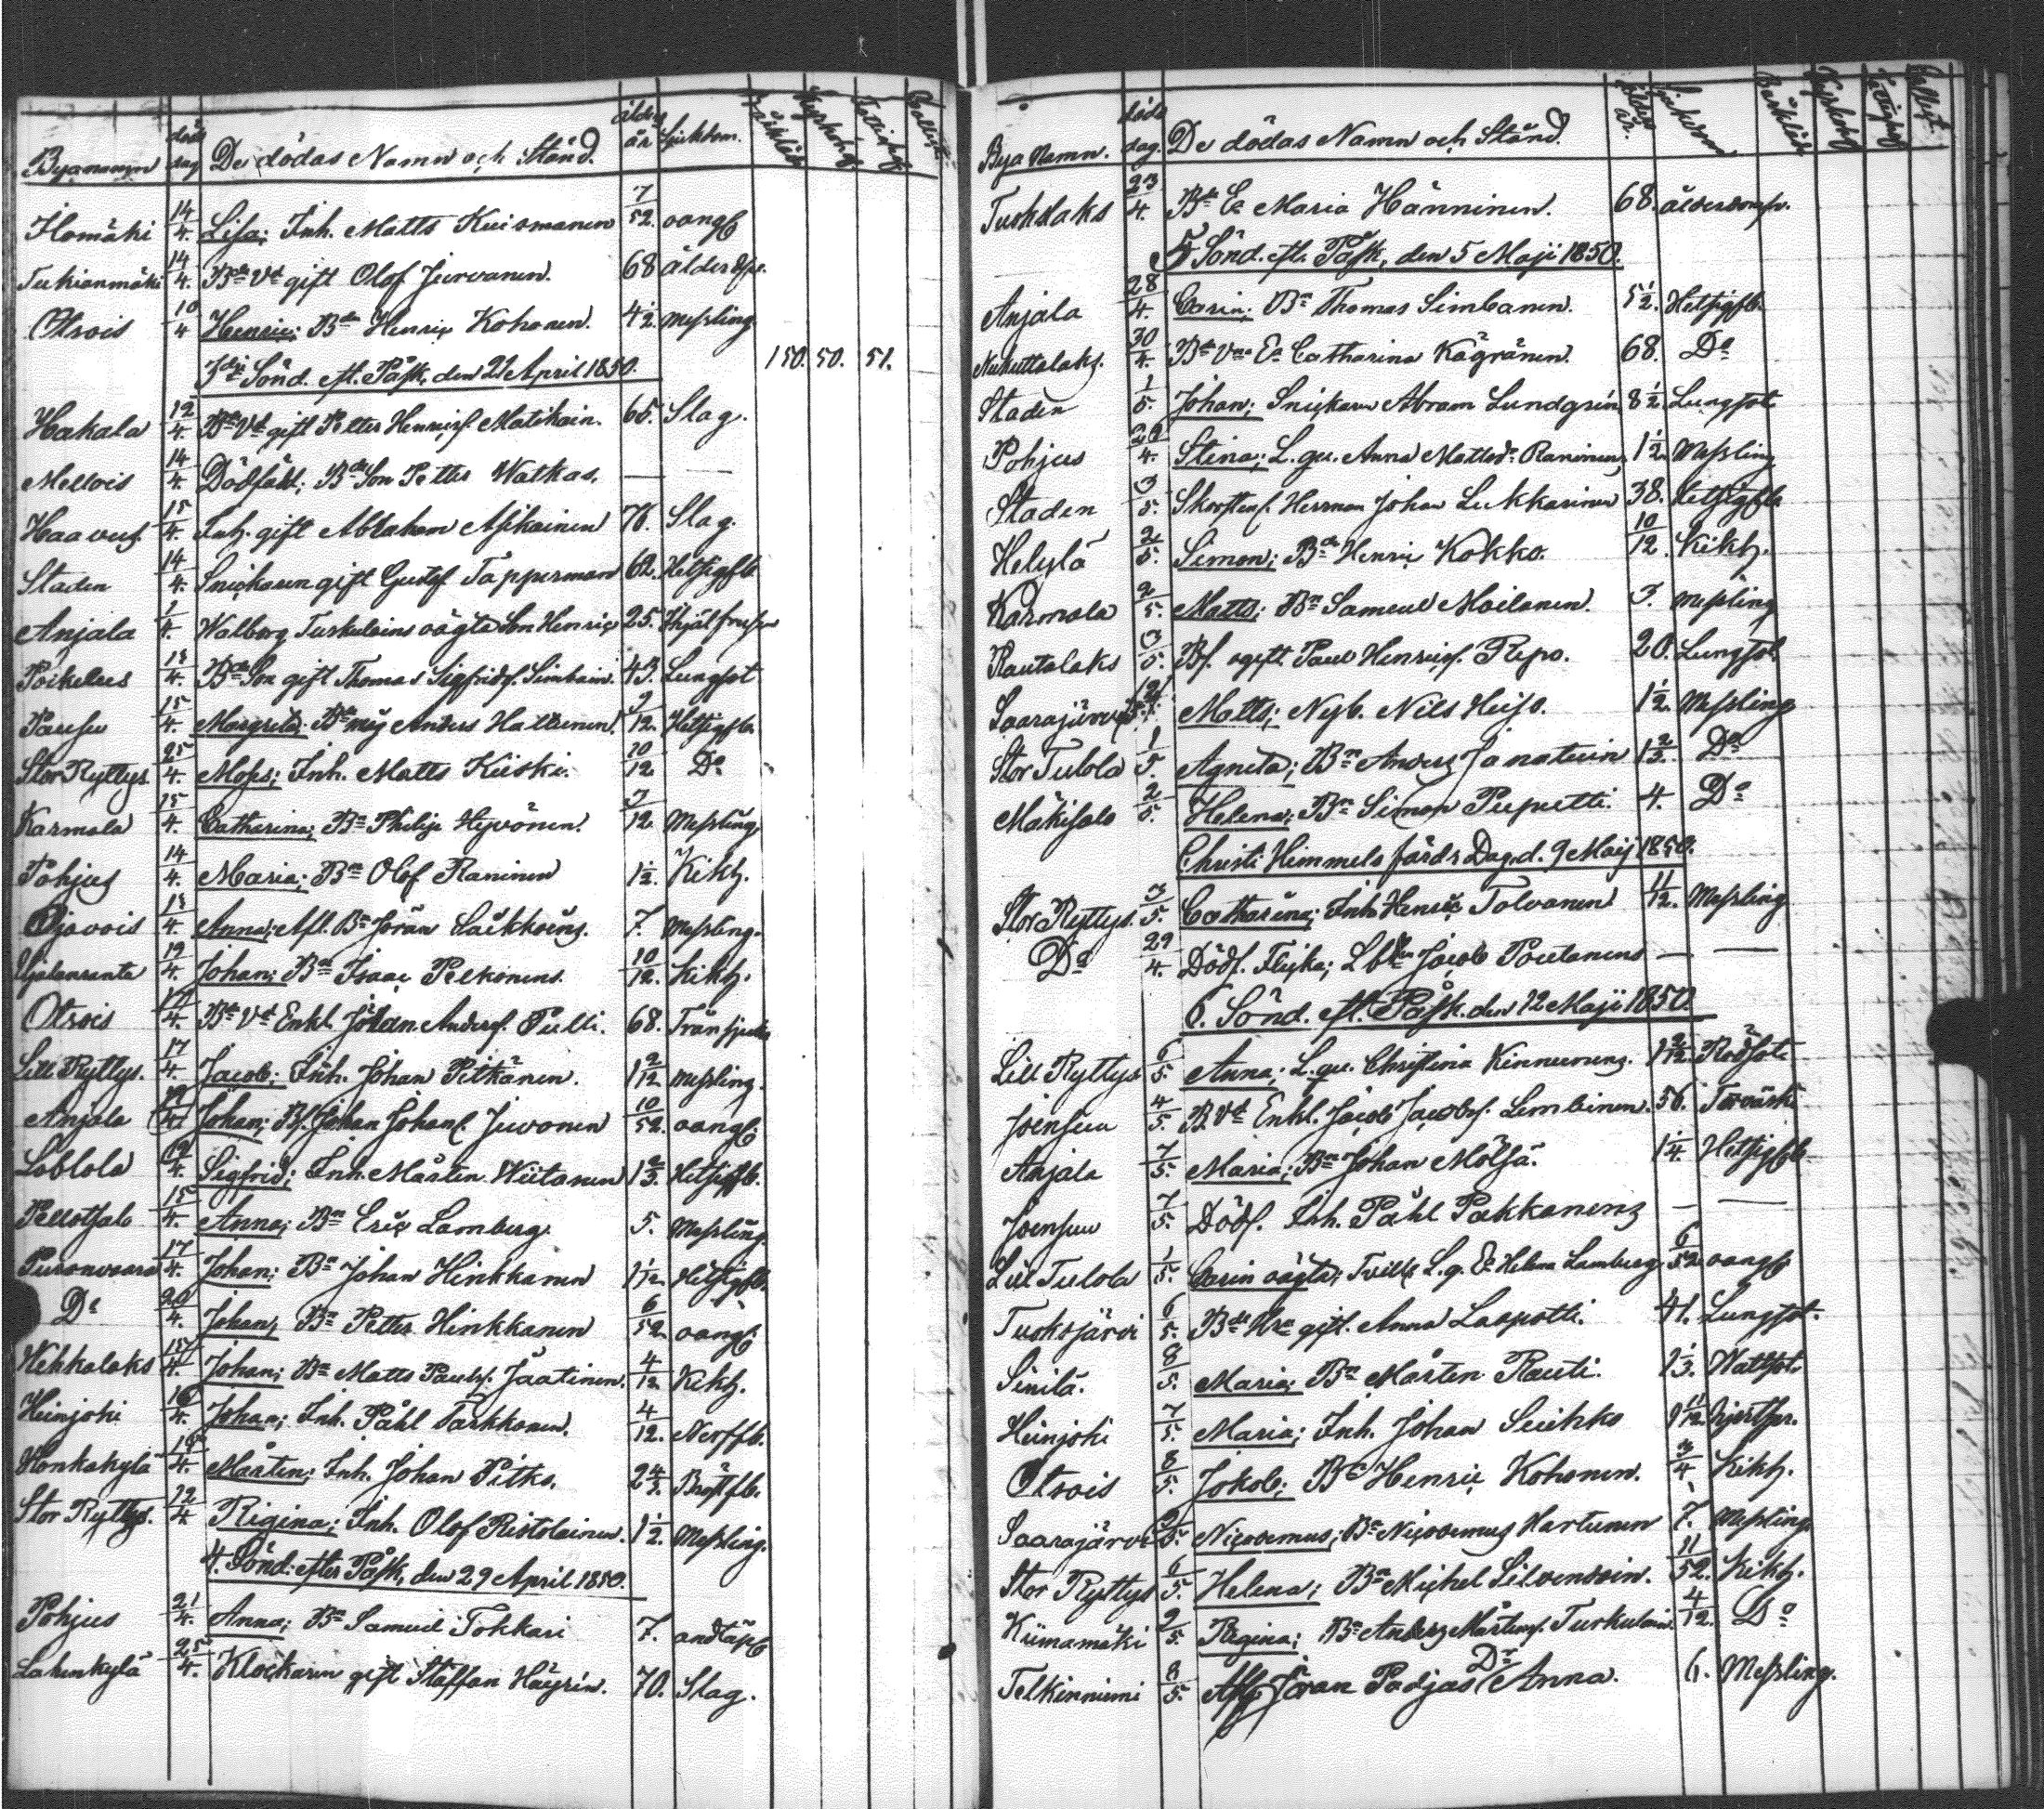 Byanamn döds dag De dödas Namn och Stånd. ålder år Sjukdom.
Ilomäki 14/4. Lisa; Inh. Matts Kuismanen 7/52. oangf
Tukianmäki 14/4. Bde Vd gift Olof Jurvanen. 68 ålderdsr.
Otsois 10/4 Henric; Bdn Henric Kohonen. 4 1/2. Messling
3dje Sönd. eft. Påsk, den 21 April 1850. 150. 50. 51.
Hakala 12/4. Bde Vd gift Petter Henricss. Matikain. 65. Slag.
Mellois 14/4. Dödfödt; Bde Son Petter Watkas. —
Haavus 15/4. Inh. gift Abraham Asikainen 76. Slag.
Staden 14/4. Snickaren gift Gustaf Tapperman 62. Hetsigfb.
Anjala 1/4. Walborg Turkulains oägta Son Henric 25. Ihjälfrusen
Poikelus 13/4. Bde Son gift Thomas Sigfridss. Simbain. 43. Lungsot
Paussu 15/4. Margreta; Bde måg Anders Hattunen 9/12. Hetsigfb.
Stor Ryttys. 25/4. Moses; Inh. Matts Kiiski. 10/12. Do
Karmala 15/4. Catharina; Bn Philip Hyvönen. 3/12. Messling
Pohjus 14/4. Maria; Bn Olof Raninen 1 1/2. Kikh.
Ojavois 13/4. Anna; Afl. Bn Jöran 7. Messling.
19/4. Johan; Bn Isaac Pelkonens. 10/12. Kikh.
Otsois 17/4. Bde Vd Enkl. Johan Anderss. Pulli. 68. Trånsjuka
Lill Ryttys. 17/4. Jacob; Inh. Johan Pitkänen. 1 2/12 Messling.
Anjala Johan; Bs. Johan Johans. Juvonen 10/52. oangf.
Loblola 19/4. Sigfrid; Inh. Mårten Wiitanen 1 2/3. Hetsigfb.
Pellotsalo 15/4. Anna; Bn Eric Lamberg. 5. Messling.
Puronvaara 17/4. Johan; Bn Johan Hinkkanen 1 1/12. Hetsigfb.
Do 20/4. Johan; Bn Petter Hinkkanen 6/52 oangf
Kekkalaks 15/4. Johan; Bn Matts Paulss. Jaatinen. 4/12 Kikh.
Heinjoki 16/4. Johan; Inh. Påhl Tarkkonen. 4/12. Nerffb.
Honkakylä 19/4. Mårten; Inh. Johan Pitko. 2 Bröstfb.
Stor Ryttys. 12/4 Rigina; Inh. Olof Ristolainen. 1 1/2. Messling.
4. Sönd: efter Påsk, den 29 April 1850.
Pohjus 21/4. Anna; Bn Samuel Tokkari 7. andtäpf
Lahenkylä 25/4. Klockaren gift Staffan Häyrin. 70. Slag.
Bya Namn. döds dag. De dödas Namn och Stånd. ålder år. Sjukdom
Tuokslaks 23/4. Bde Ea Maria Hänninen. 68. ålderdomsr.
5 Sönd. eft. Påsk, den 5 Maji 1850.
Anjala 28/4. Carin; Bn Thomas Simbanen. 5 1/2. Hetsigfb.
Nukuttalaks. 30/4. Bde Vns Ea Catharina Kägränen. 68. Do
Staden 1/5. Johan; Snickaren Abram Lundgrén 8 1/2. Lungsot
Pohjus 29/4. Stina; L. qu. Anna Mattsdr Raninen 1 1/2. Messling
Staden 3/5. Skorstensf. Herman Johan Lukkarinen 38. Hetsigfb.
Helylä 2/5. Simon; Bde Henric Kokko. 10/12. Kikh.
Karmala 2/5. Matts; Bn Samuel Moilanen. 3. Messling
Rautalaks 3/5. Bs. ogift Paul Henricss. Repo. 20. Lungsot
Saarajärvi Matts; Nyb. Nils Huiso. 1 1/2. Messling
Stor Tulola 1/5. Agneta; Bn Anders Janatuin 1 2/3. Do
Mäkisalo 2/5. Helena; Bn Simon Puputti. 4. Do
Christi Himmelsfärds Dag. d. 9 Maij 1850.
Stor Ryttys. 3/5. Catharina; Inh. Henric Tolvanen 11/12. Messling
Do 29/4. Dödf. Flicka; Lbden Jacob Poutanens — —
6. Sönd. eft. Påsk. den 12 Maji 1850.
Lill Ryttys 6/5. Anna; L. qu. Christina Kinnunens. 1 2/12. Rödsot
Joensuu 4/5. B. Vd Enkl. Jacob Jacobss. Lembinen. 56. Torrvärk
Anjala 7/5. Maria; Bn Johan Mölsä. 1 1/4. Hetsigfb.
Joensuu 7/5. Dödf. Inh. Påhl Pakkanens — —
Lill Tulola 1/5. Carin oägta; Tvill. L. q. Ea Helena Lamberg. 6/52 oangf.
Tuoksjärvi 6/5. Bde Hn gift. Anna Laapotti. 41. Lungsot.
Sinilä. 8/5. Maria; Bn Mårten Rauti. 1 1/3. Wattsot
Heinjoki 7/5. Maria; Inh. Johan Suikko 9 11/12.
Otsois 8/5. Jokob; Bn Henric Kohonen. 3/4. Kikh.
Saarajärvi 2/5. Nicodemus; Bn Nicodemus Hartunen 7. Messling
Stor Ryttys 6/5. Helena; Bn Michel Silvendoin. 11/52. Kikh.
Kiimamäki 9/5. Regina; Bn Anders Mårtenss. Turkulain. 4/12. Do
Telkinniemi 8/5. Afsk. Jöran Padjas Dr Anna. 6. Messling.